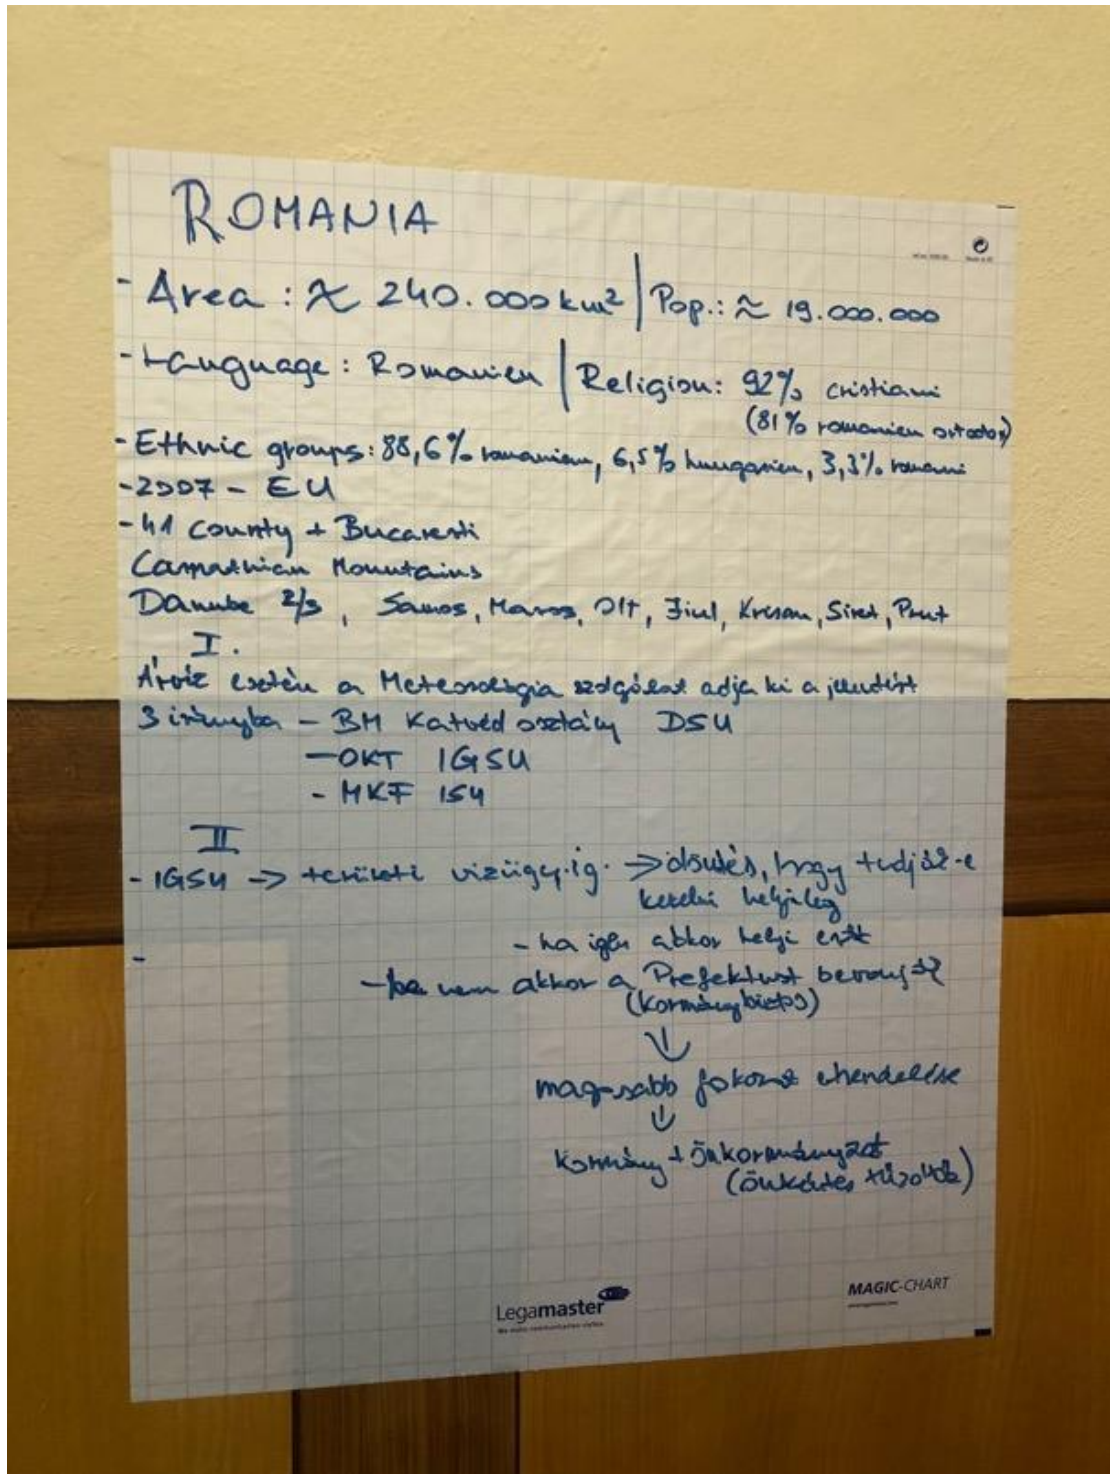 ROMANIA
- Area : ≈ 240.000 km² | Pop.: ≈ 19.000.000
- Language : Romanien | Religion: 92% cristiani
(81% romanien ortodox)
- Ethnic groups: 88,6% romanien, 6,5% hungarien, 3,3% romani
- 2007 - EU
- 41 County + Bucaresti
Carpathian Mountains
Danube 2/3, Samos, Maros, Olt, Jiul, Siret, Prut
I.
Árvíz esetén a Meteorológia szolgálat adja ki a jelentést
3 irányba - BM Katvéd osztály DSU
- OKT IGSU
- MKF ISU
II
- IGSU -> területi vízügy.ig. -> döntés, hogy tudják-e
kezelni helyileg
- ha igen akkor helyi erők
-
- ha nem akkor a Prefektust bevonják
(Kormánybiztos)
magasabb fokozat elrendelése
Kormány + Önkormányzat
(önkéntes tűzoltók)
Legamaster
MAGIC-CHART